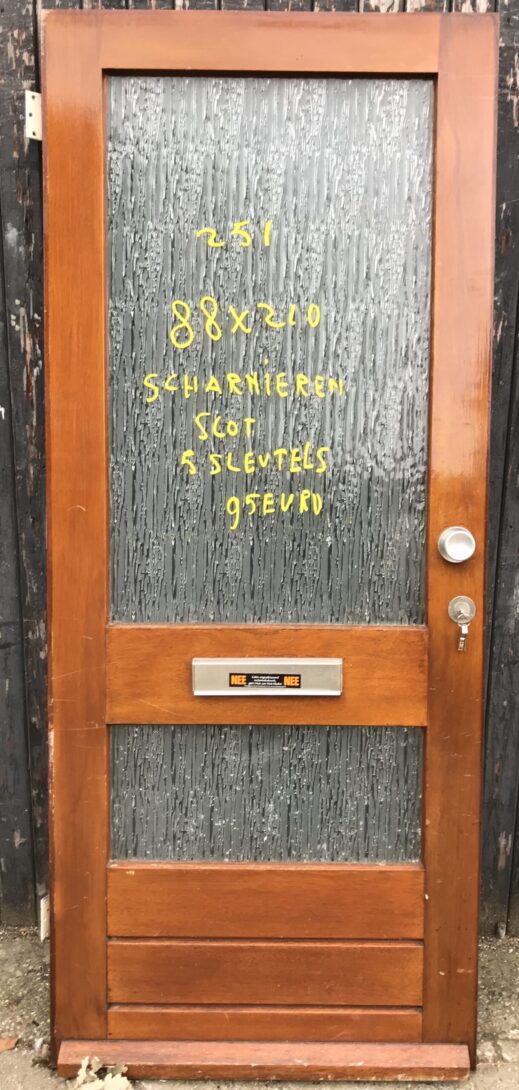 251
88x210
SCHARNIEREN
SLOT
5 SLEUTELS
95EURO
NEE NEE